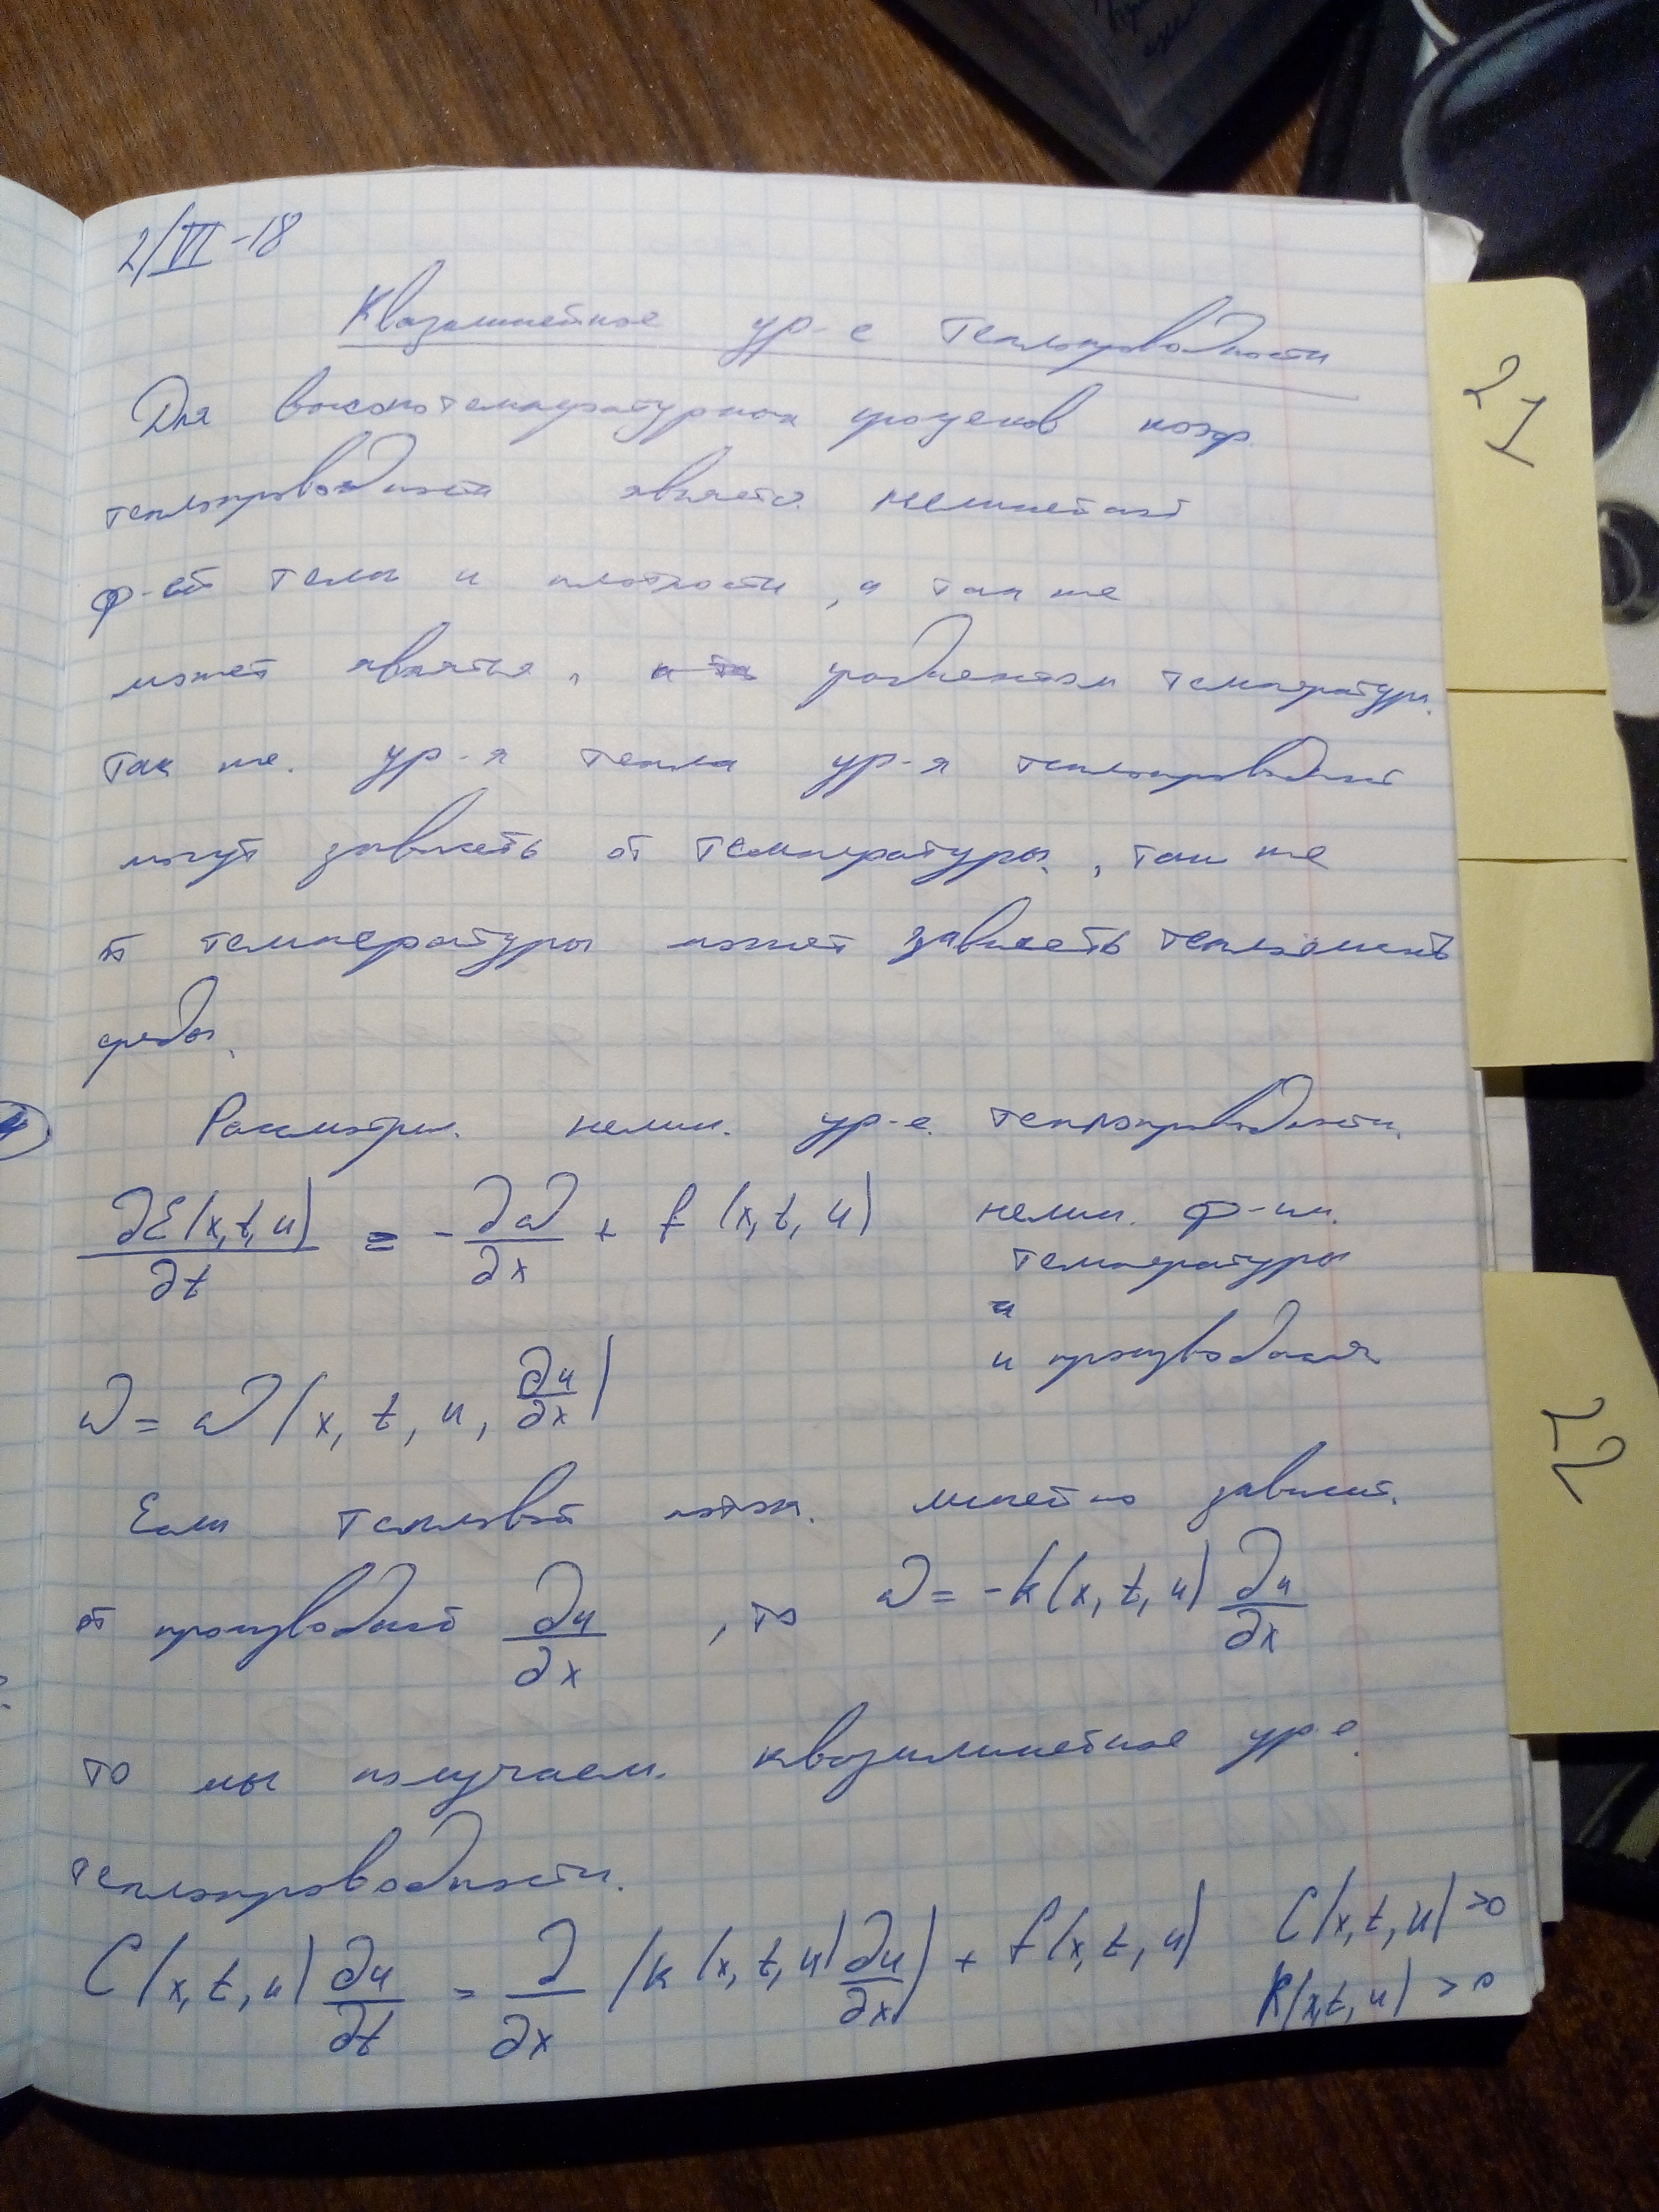 2/VI-18
Квазилинейное ур-е теплопроводности
Для высокотемпературных процесов коэф.
теплопроводности являетс. нелинейной
ф-ей темп и плотности, а так же
может являтся, градиентом температуры.
так же. ур-я тепла ур-я теплопроводност
могут зависеть от температуры, так же
от температуры может зависеть теплоемкость
среды.
Рассмотрим. нелин. ур-е. теплопроводности.
∂ℰ(x,t,u)/∂t = -∂ω/∂x + f(x,t,u) нелин. ф-ии.
температуры
и
и производная
ω = ω(x, t, u, ∂u/∂x)
Если тепловой поток. линейно зависит.
от производной ∂u/∂x, то ω = -k(x, t, u) ∂u/∂x
то мы получаем. квазилинейное ур-е.
теплопроводности.
C(x, t, u) ∂u/∂t = ∂/∂x (k(x, t, u) ∂u/∂x) + f(x, t, u) C(x, t, u) >0
k(x,t, u) >0
21
22